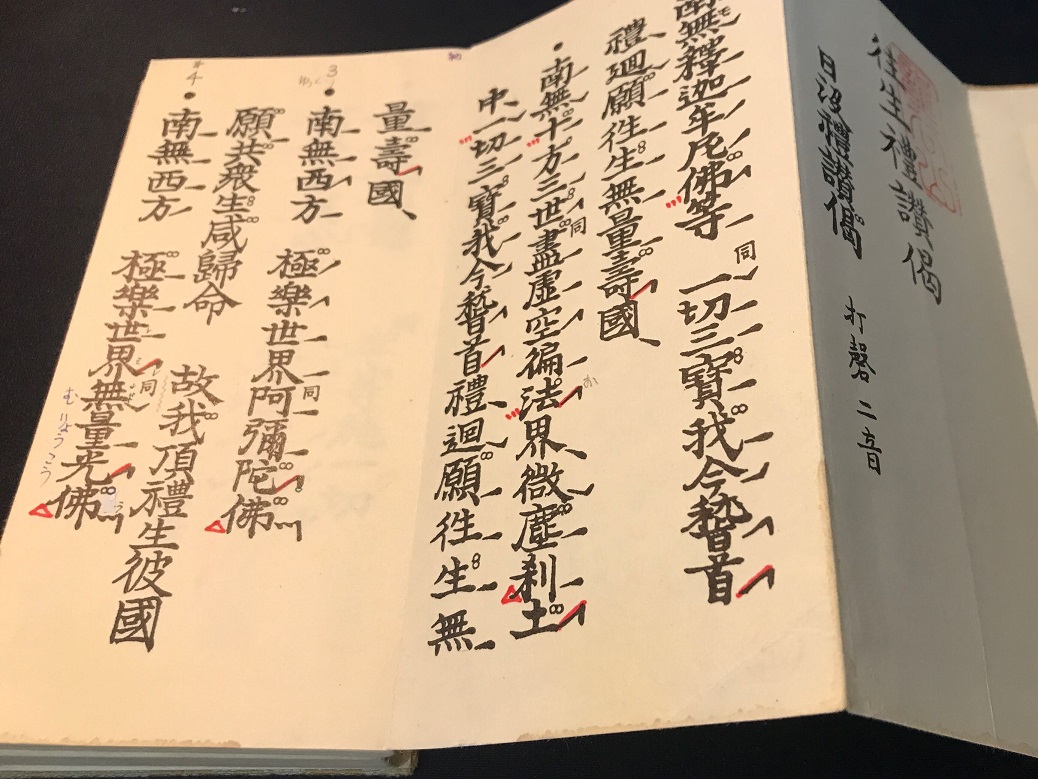 往生禮讚偈
日沒禮讚偈 打磬二音
南無釋迦牟尼佛等 同 一切三寶我今稽首
禮廻願往生無量壽國
南無十方三世同盡虛空徧法界微塵刹土
中一切三寶我今稽首禮廻願往生無
量壽國
3
南無西方 極樂世界同阿彌陀佛
願共衆生咸歸命 故我頂禮生彼國
4
南無西方 極樂世界同無量光佛
むりょうこう